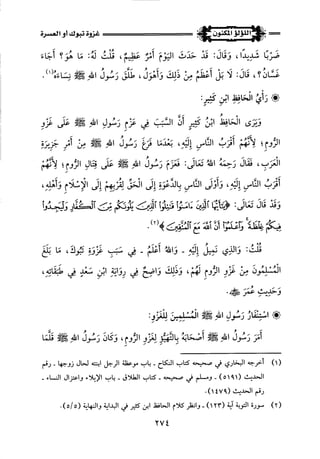 اللؤلؤ المكنون
غزوة تبوك أو العسرة
ضَرْبًا شَدِيدًا، وَقَالَ: قَدْ حَدَثَ اليَوْمَ أَمْرٌ عَظِيمٌ، قُلْتُ لَهُ: مَا هُوَ؟ أَجَاءَ
غَسَّانُ؟، قَالَ: لَا بَلْ أَعْظَمُ مِنْ ذَلِكَ وَأَهْوَلُ، طَلَّقَ رَسُولُ اللهِ ﷺ نِسَاءَهُ(١).
◉ رَأْيُ الْحَافِظِ ابْنِ كَثِيرٍ:
وَيَرَى الْحَافِظُ ابْنُ كَثِيرٍ أَنَّ السَّبَبَ فِي عَزْمِ رَسُولِ اللهِ ﷺ عَلَى غَزْوِ
الرُّومِ؛ لِأَنَّهُمْ أَقْرَبُ النَّاسِ إِلَيْهِ، بَعْدَمَا فَرَغَ رَسُولُ اللهِ ﷺ مِنْ أَمْرِ جَزِيرَةِ
العَرَبِ، فَقَالَ رَحِمَهُ اللهُ تَعَالَى: فَعَزَمَ رَسُولُ اللهِ ﷺ عَلَى قِتَالِ الرُّومِ؛ لِأَنَّهُمْ
أَقْرَبُ النَّاسِ إِلَيْهِ، وَأَوْلَى النَّاسِ بِالدَّعْوَةِ إِلَى الْحَقِّ لِقُرْبِهِمْ إِلَى الْإِسْلَامِ وَأَهْلِهِ،
وَقَدْ قَالَ اللهُ تَعَالَى: ﴿يَا أَيُّهَا الَّذِينَ آمَنُوا قَاتِلُوا الَّذِينَ يَلُونَكُم مِّنَ الْكُفَّارِ وَلْيَجِدُوا
فِيكُمْ غِلْظَةً وَاعْلَمُوا أَنَّ اللَّهَ مَعَ الْمُتَّقِينَ﴾(٢).
قُلْتُ: وَالذِي نَمِيلُ إِلَيْهِ - وَاللهُ أَعْلَمُ - فِي سَبَبِ غَزْوَةِ تَبُوكَ، مَا بَلَغَ
الْمُسْلِمُونَ مِنْ غَزْوِ الرُّومِ لَهُمْ، وَذَلِكَ وَاضِحٌ فِي رِوَايَةِ ابْنِ سَعْدٍ فِي طَبَقَاتِهِ،
وَحَدِيثِ عُمَرَ ﷺ.
◉ اسْتِنْفَارُ رَسُولِ اللهِ ﷺ الْمُسْلِمِينَ لِلْغَزْوِ:
أَمَرَ رَسُولُ اللهِ ﷺ أَصْحَابَهُ بِالتَّهَيُّؤِ لِغَزْوِ الرُّومِ، وَكَانَ رَسُولُ اللهِ ﷺ قَلَّمَا
(١) أخرجه البخاري في صحيحه - كتاب النكاح - باب موعظة الرجل ابنته لحال زوجها - رقم
الحديث (٥١٩١) - ومسلم في صحيحه - كتاب الطلاق - باب الإيلاء واعتزال النساء -
رقم الحديث (١٤٧٩).
(٢) سورة التوبة آية (١٢٣) - وانظر كلام الحافظ ابن كثير في البداية والنهاية (٥/٥)
٢٧٤